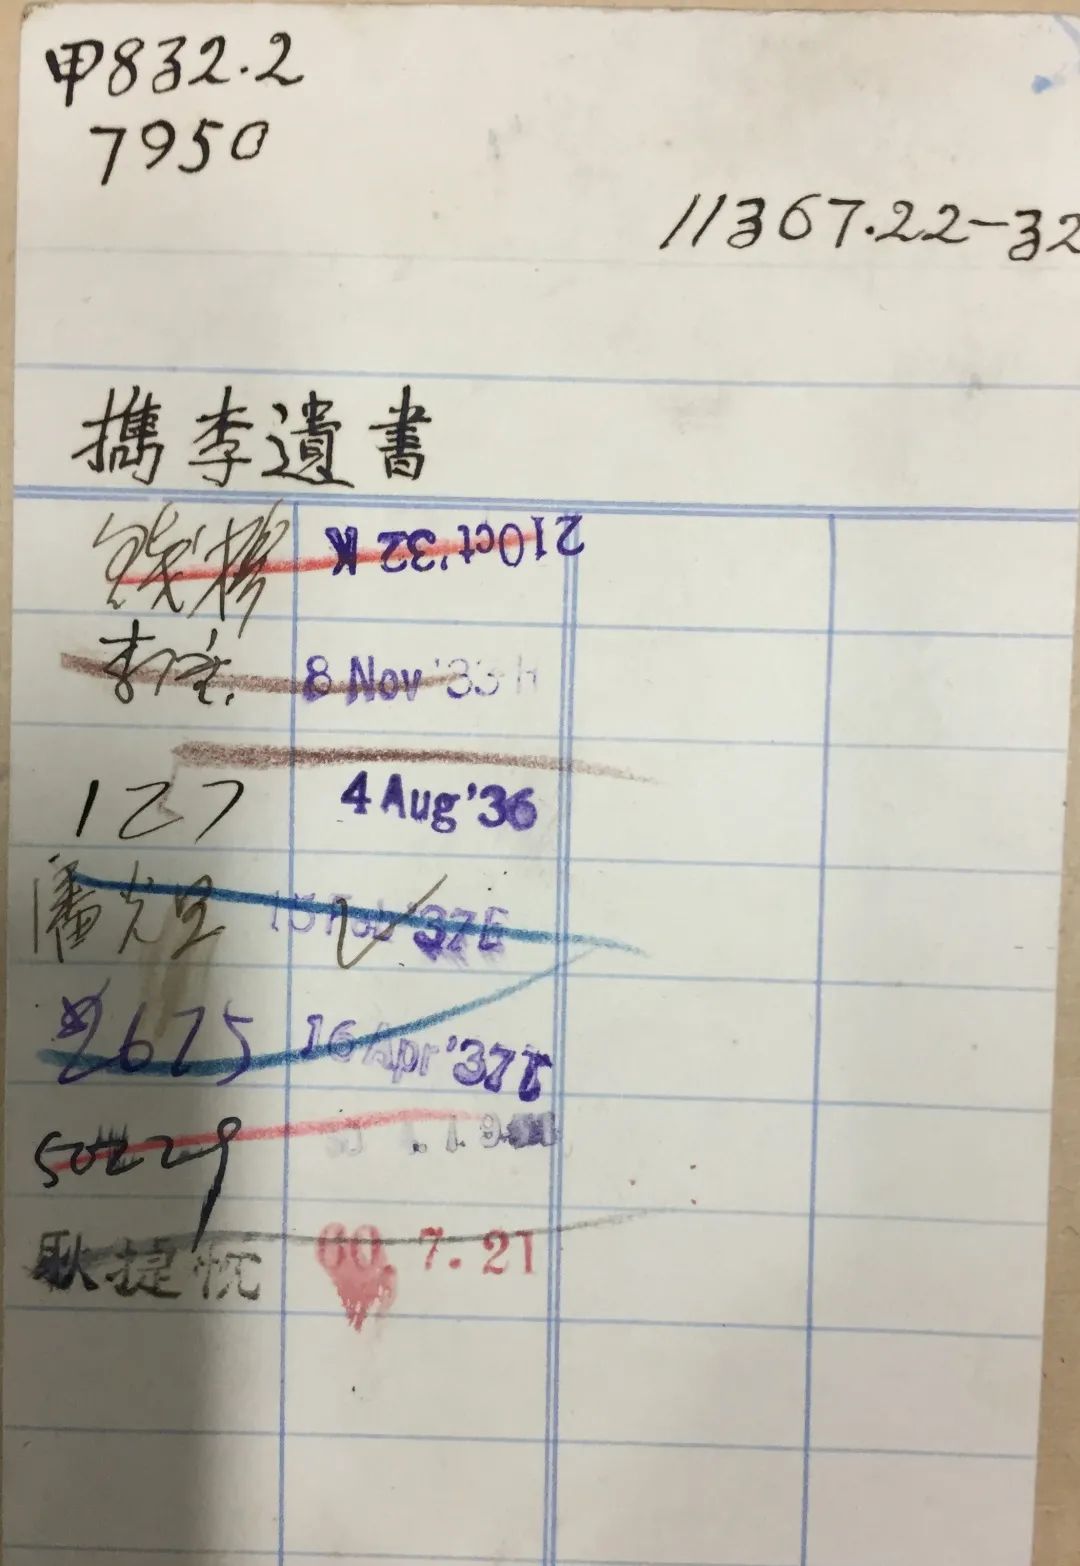 甲832.2
7950
11367.22-32
攜李遺書
錢穆 21 Oct '32 K
8 Nov '33
127 4 Aug '36
潘光旦 15 Feb '37E
2675 16 Apr '37T
50229
耿捷忱 60.7.21